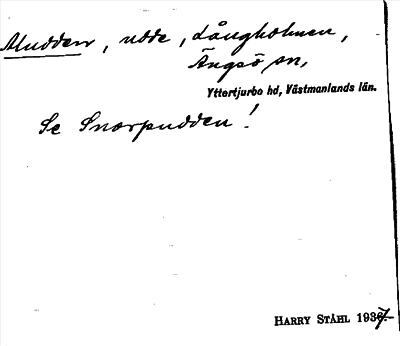 Aludden, udde, Långholmen,
Ängsö sn,
Yttertjurbo hd, Västmanlands län.
Se Snorpudden!
HARRY STÅHL 1937